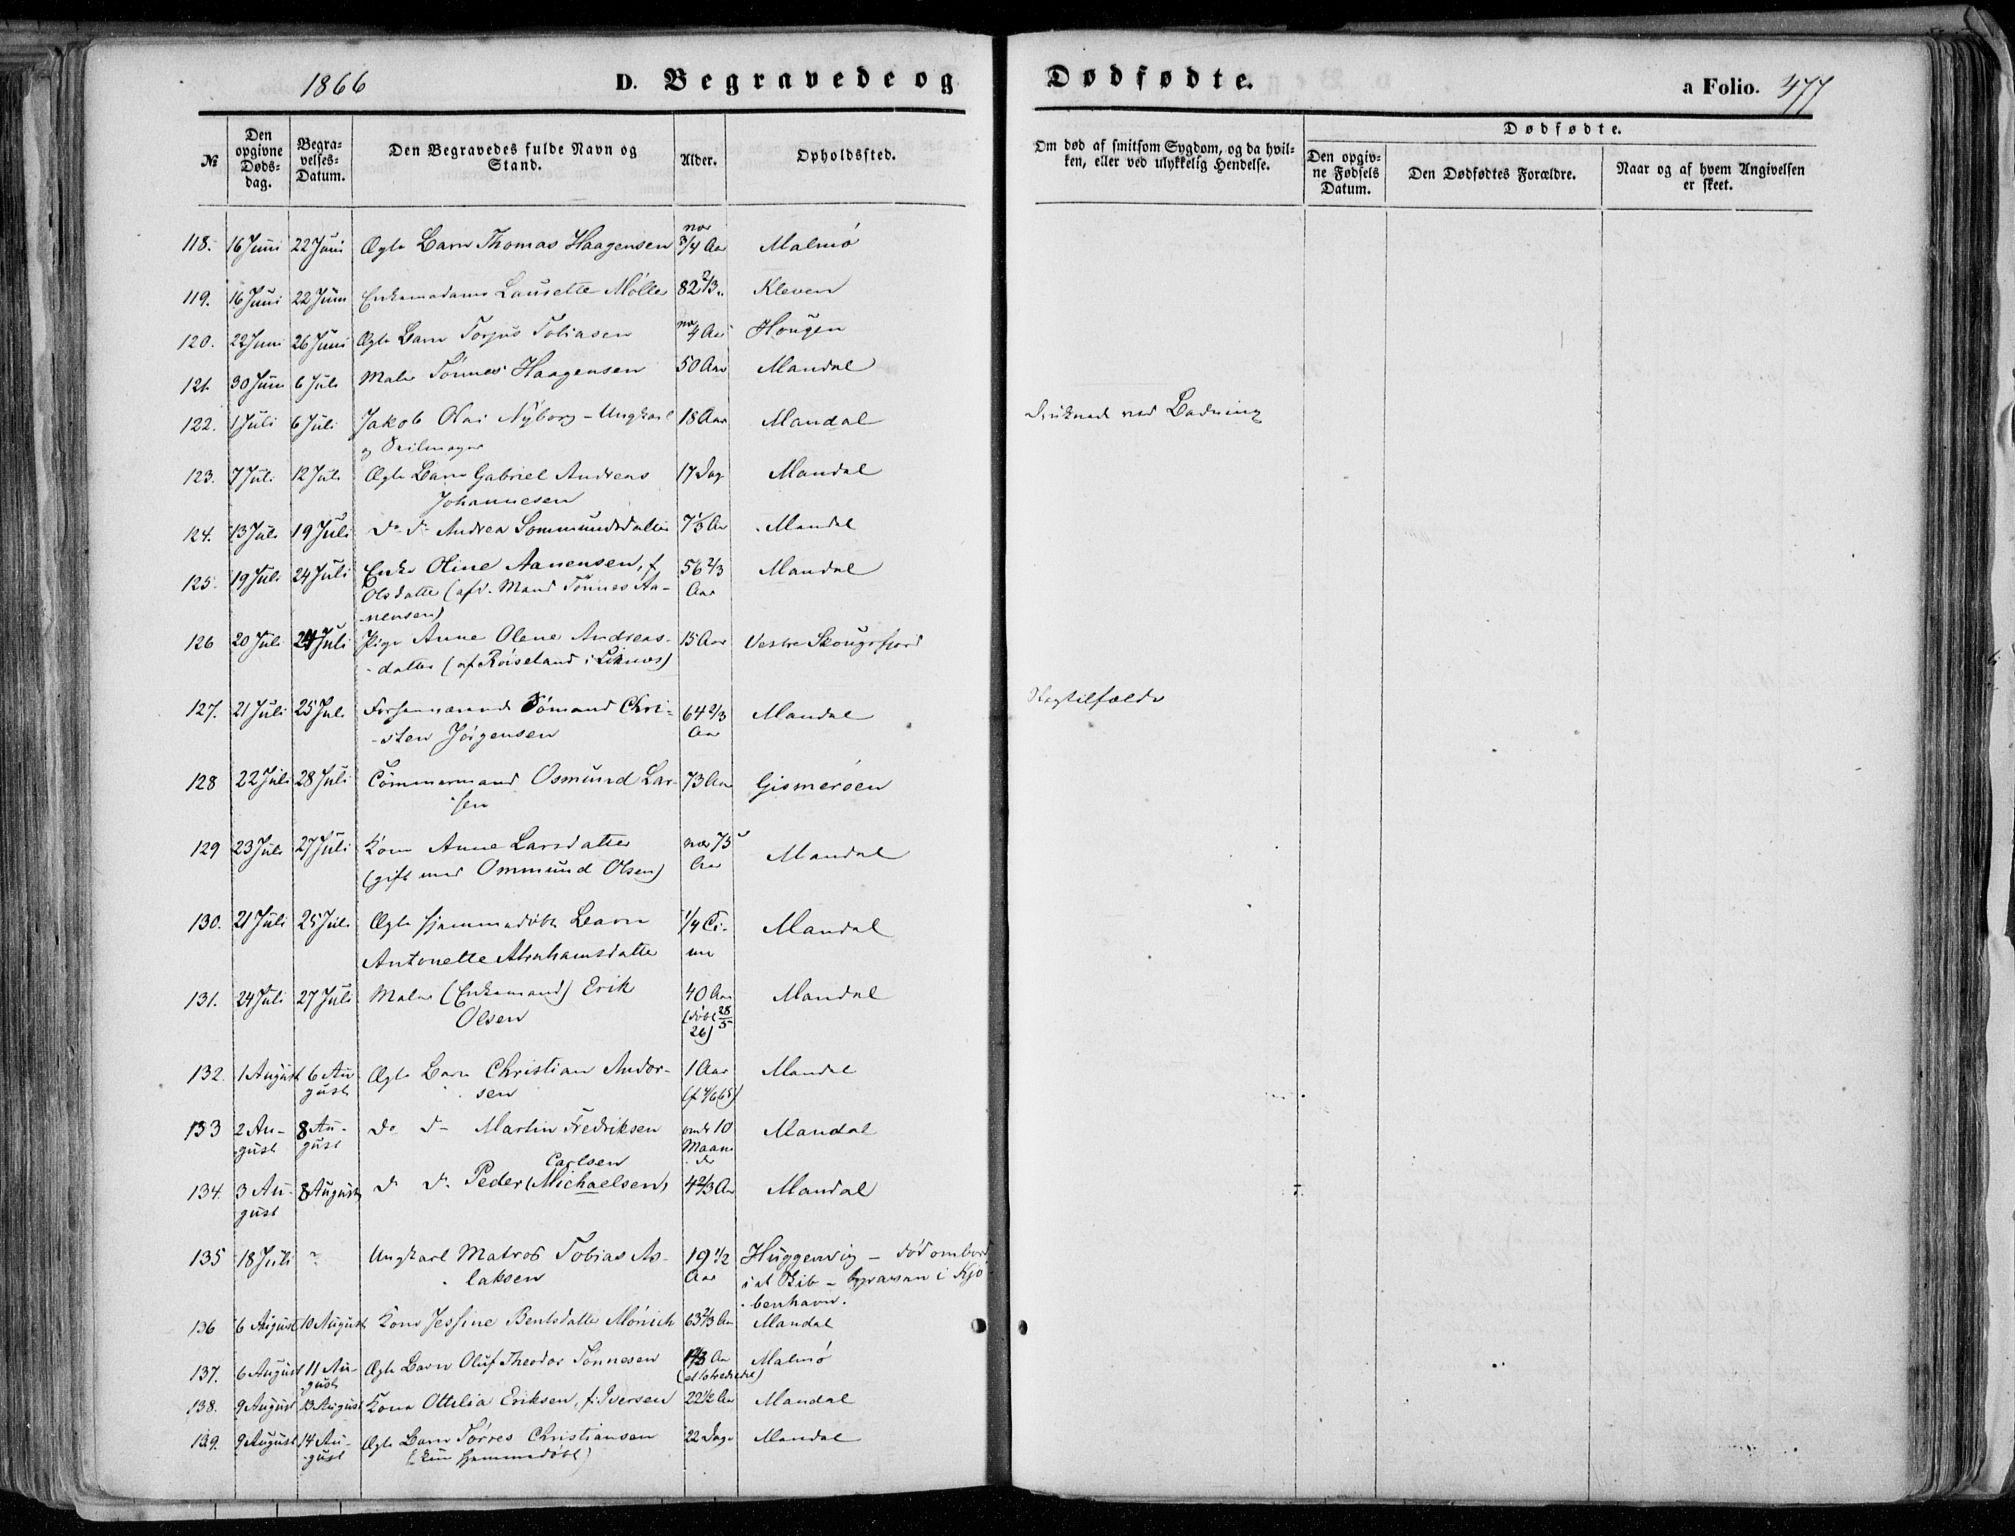 1866
D. Begravede og Dødfødte.
a Folio. 477
№
Den opgivne Døds-dag.
Begra-velses-Datum.
Den Begravedes fulde Navn og Stand.
Alder.
Opholdssted.
Om død af smitsom Sygdom, og da hvil-ken, eller ved ulykkelig Hendelse.
Dødfødte.
Den opgiv-ne Fødsels Datum.
Den Dødfødtes Forældre.
Naar og af hvem Angivelsen er skeet.
118. 16 Juni 22 Juni Ægte Barn Thomas Haagensen nær 3/4 Aar Malmø
119. 16 Juni 22 Juni Enkemadame Lausette Mølle 82 2/3 " Kleven
120. 22 Juni 26 Juni Ægte Barn Torjus Tobiasen nær 4 Aar Hougen
121. 30 Juni 6 Juli Maler Tønnes Haagensen 50 Aar Mandal
122. 1 Juli 6 Juli Jakob Olai Nyborg - Ungkarl 18 Aar Mandal Druknede ved Badning
og Seilmager
123. 7 Juli 12 Juli Ægte Barn Gabriel Andreas 17 Dag Mandal
Johannesen
124. 13 Juli 19 Juli Do Do Andrea Sommundsdatter 7 1/3 Aar Mandal
125. 19 Juli 24 Juli Enke Oline Aanensen, f. 56 2/3 Mandal
Olsdatter (afd. Mand Tønnes Aa- Aar
nensen)
126 20 Juli 24 Juli Pige Anne Olene Andreas- 15 Aar Vestre Skougsfjord
datter (af Røiseland i Liknæs)
127. 21 Juli 25 Juli Forhenværende Sømand Chri- 64 2/3 Mandal Slagtilfælde
sten Jørgensen Aar
128 22 Juli 28 Juli Tømmermand Osmund Lar- 73 Aar Gismerøen
sen
129 23 Juli 27 Juli Kone Anne Larsdatter nær 75 Mandal
(gift med Ommund Olsen) Aar
130. 21 Juli 25 Juli Ægte hjemmedøbt Barn 1/4 Ti- Mandal
Antonette Abrahamsdatter me
131. 24 Juli 27 Juli Maler (Enkemand) Erik 40 Aar Mandal
Olsen (døbt 28/5 26)
132. 1 August 6 Au- Ægte Barn Christian Andor- 1 Aar Mandal
gust sen (f 4/6 65)
133 2 Au- 8 Au- Do Do Martin Fredriksen omtr 10 Mandal
gust gust Maane-der
Carlsen
134. 3 Au- 8 August Do Do Peder (Michaelsen) 4 2/3 Aar Mandal
gust
135 18 Juli ? Ungkarl Matros Tobias As- 19 1/2 Huggenvig - død ombord
laksen Aar i et Skib - begraven i Kjø-
benhavn.
136 6 August 10 August Kone Jessine Bentsdatter Mønich 63 2/3 Aar Mandal
137. 6 August 11 Au- Ægte Barn Oluf Theodor Tønnesen 1 2/3 Aar Malmø
gust
138. 9 August 13 August Kone Ottilia Eriksen, f. Iversen 22 1/2 Aar Mandal
139. 9 August 14 Au- Ægte Barn Tørres Christiansen 22 Dage Mandal
gust (kun hjemmedøbt)